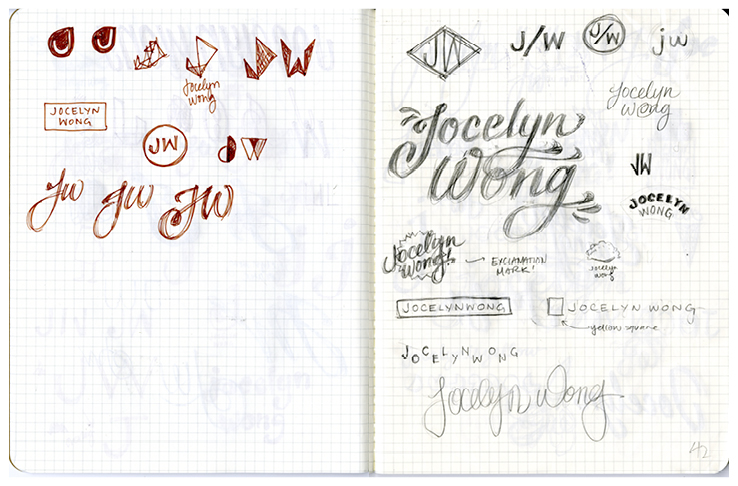 JW
Jocelyn
wong
JOCELYN
WONG
JW
JW
Jw Jw JW
JW J/W J/W jw
Jocelyn
w@ng
Jocelyn
Wong
JW
JOCELYN
WONG
Jocelyn
Wong!
EXCLAMATION
MARK!
Jocelyn
wong
JOCELYNWONG
JOCELYN WONG
yellow square
JOCELYNWONG
Jocelyn Wong
42